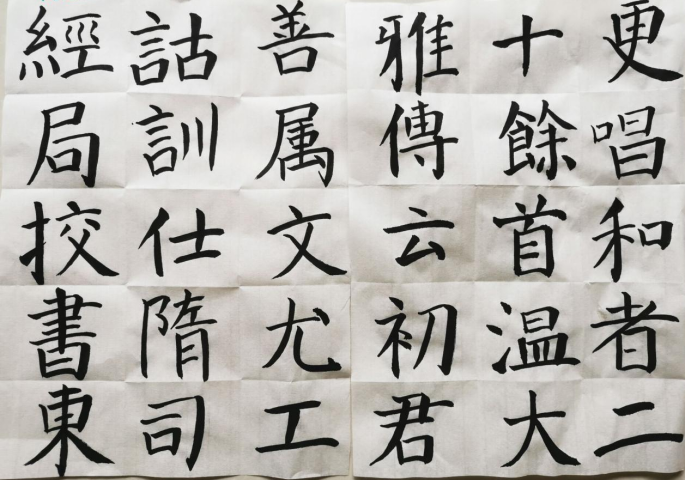 更唱和者二
十餘首温大
雅傳云初君
善属文尤工
詁訓仕隋司
經局挍書東